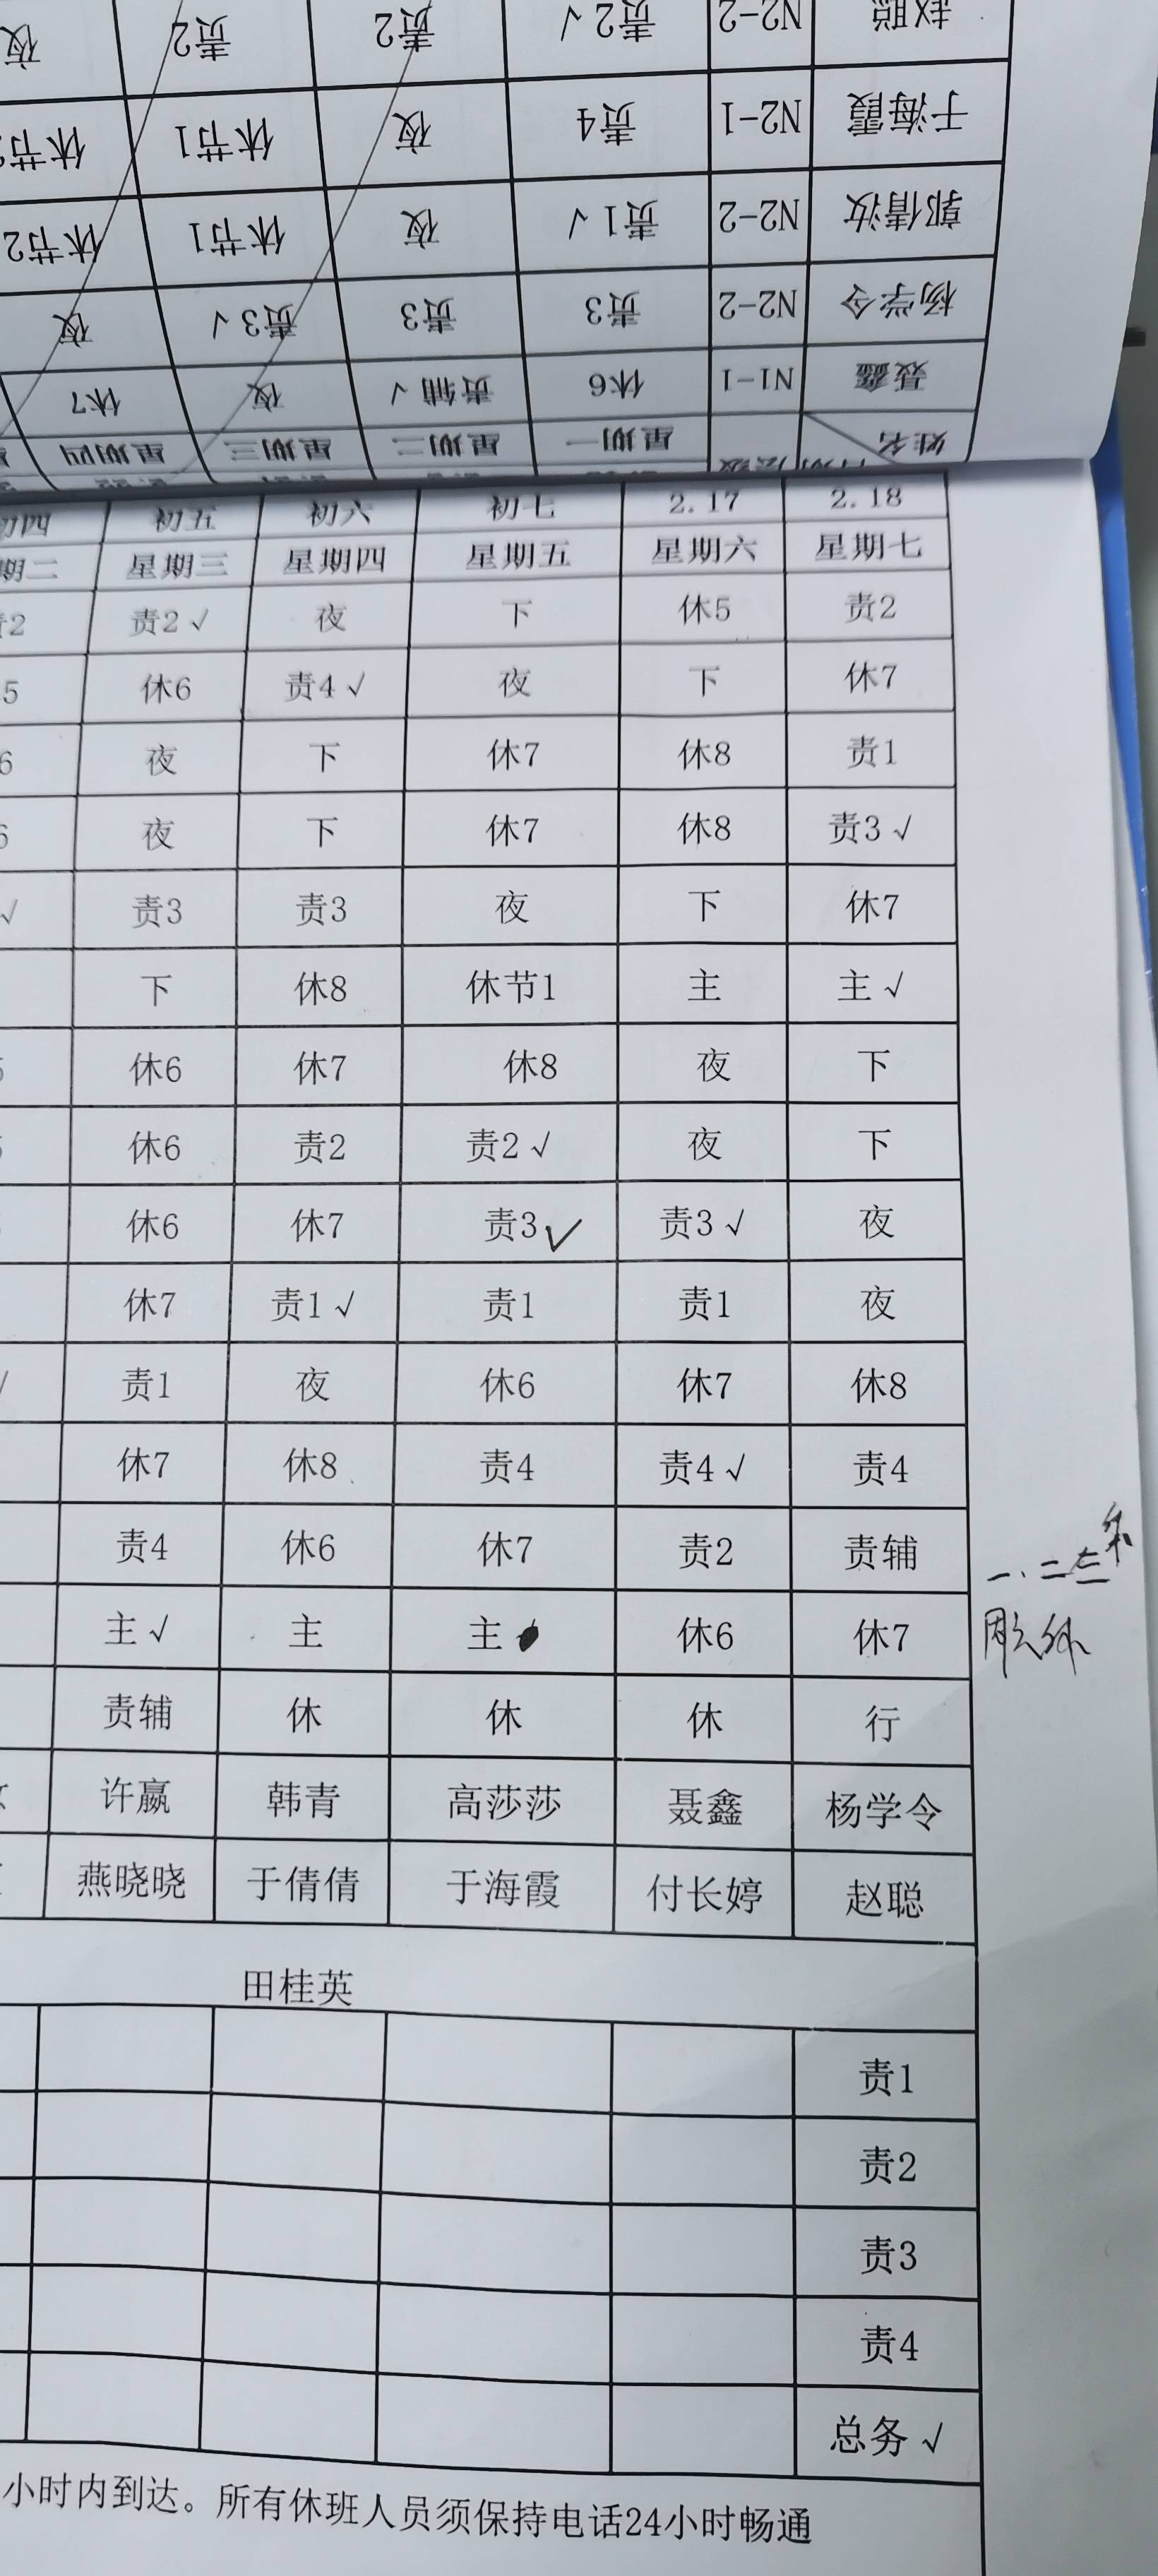 夜 责2 责2 责2√ N2-2 赵聪
休节 休节1 夜 责4 N2-1 于海霞
休节2 休节1 夜 责1√ N2-2 郭倩汝
夜 责3√ 责3 责3 N2-2 杨学令
休7 夜 责辅√ 休6 N1-1 聂鑫
星期四 星期三 星期二 星期一 姓名
初四 初五 初六 初七 2.17 2.18
期二 星期三 星期四 星期五 星期六 星期七
责2 责2√ 夜 下 休5 责2
5 休6 责4√ 夜 下 休7
6 夜 下 休7 休8 责1
6 夜 下 休7 休8 责3√
√ 责3 责3 夜 下 休7
下 休8 休节1 主 主√
5 休6 休7 休8 夜 下
休6 责2 责2√ 夜 下
休6 休7 责3√ 责3√ 夜
休7 责1√ 责1 责1 夜
责1 夜 休6 休7 休8
休7 休8 责4 责4√ 责4
责4 休6 休7 责2 责辅
一、二三
主√ 主 主 休6 休7
责辅 休 休 休 行
许赢 韩青 高莎莎 聂鑫 杨学令
燕晓晓 于倩倩 于海霞 付长婷 赵聪
田桂英
责1
责2
责3
责4
总务√
小时内到达。所有休班人员须保持电话24小时畅通